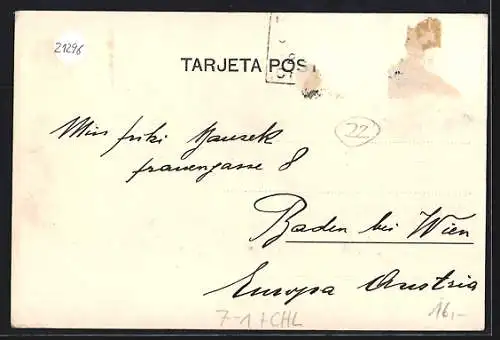 21296
TARJETA POST
22
Miss friki Hausek
frauengasse 8
Baden bei Wien
Europa Austria
7-1 + CHL
16,-